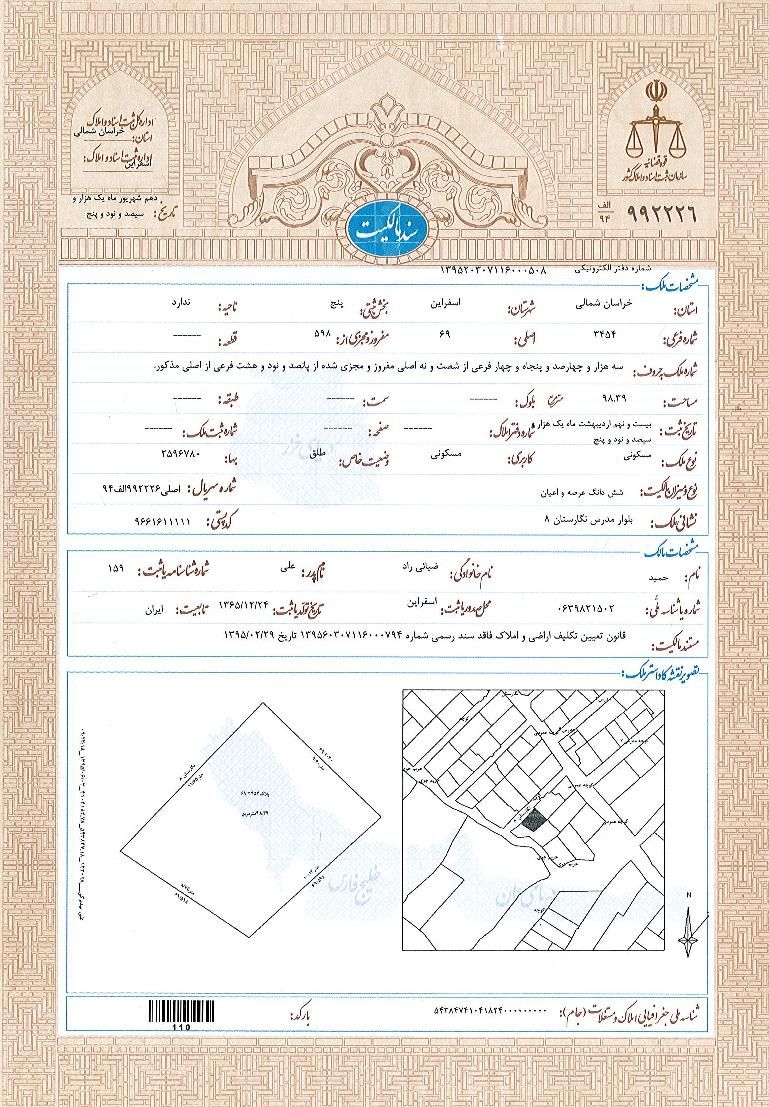 قوه قضائیه
سازمان ثبت اسناد و املاک کشور
الف
۹۴
۹۹۲۲۲۶
اداره کل ثبت اسناد و املاک
استان: خراسان شمالی
اداره ثبت اسناد و املاک:
اسفراین
تاریخ: دهم شهریور ماه یک هزار و
سیصد و نود و پنج
سند مالکیت
شماره دفتر الکترونیکی ۱۳۹۵۲۰۳۰۷۱۱۶۰۰۰۵۰۸
مشخصات ملک:
استان: خراسان شمالی شهرستان: اسفراین بخش ثبتی: پنج ناحیه: ندارد
شماره فرعی: ۳۴۵۴ اصلی: ۶۹ مفروز و مجزی از: ۵۹۸ قطعه: ------
شماره ملک بحروف: سه هزار و چهارصد و پنجاه و چهار فرعی از شصت و نه اصلی مفروز و مجزی شده از پانصد و نود و هشت فرعی از اصلی مذکور.
مساحت: ۹۸.۳۹ متر مربع بلوک: ------ سمت: ------ طبقه: ------
تاریخ ثبت: بیست و نهم اردیبهشت ماه یک هزار و
سیصد و نود و پنج شماره دفتر املاک: ------ صفحه: ------ شماره ثبت ملک: ------
نوع ملک: مسکونی کاربری: مسکونی وضعیت خاص: طلق بها: ۲۵۹۶۷۸۰
نوع و میزان مالکیت: شش دانگ عرصه و اعیان شماره سریال: اصلی۹۹۲۲۲۶الف۹۴
نشانی ملک: بلوار مدرس نگارستان ۸ کد پستی: ۹۶۶۱۶۱۱۱۱۱
مشخصات مالک
نام: حمید نام خانوادگی: ضیائی راد نام پدر: علی شماره شناسنامه یا ثبت: ۱۵۹
شماره یا شناسه ملی: ۰۶۳۹۸۲۱۵۰۲ محل صدور یا ثبت: اسفراین تاریخ تولد یا ثبت: ۱۳۶۵/۱۲/۲۴ تابعیت: ایران
مستند مالکیت: قانون تعیین تکلیف اراضی و املاک فاقد سند رسمی شماره ۱۳۹۵۶۰۳۰۷۱۱۶۰۰۰۷۹۴ تاریخ ۱۳۹۵/۰۲/۲۹
تصویر نقشه کاداستر ملک:
خلیج فارس
N
شناسه ملی جغرافیایی املاک و مستغلات (جام): ۵۴۲۸۴۷۴۱۰۴۱۸۲۴۰۰۰۰۰۰۰۰۰
بارکد:
110